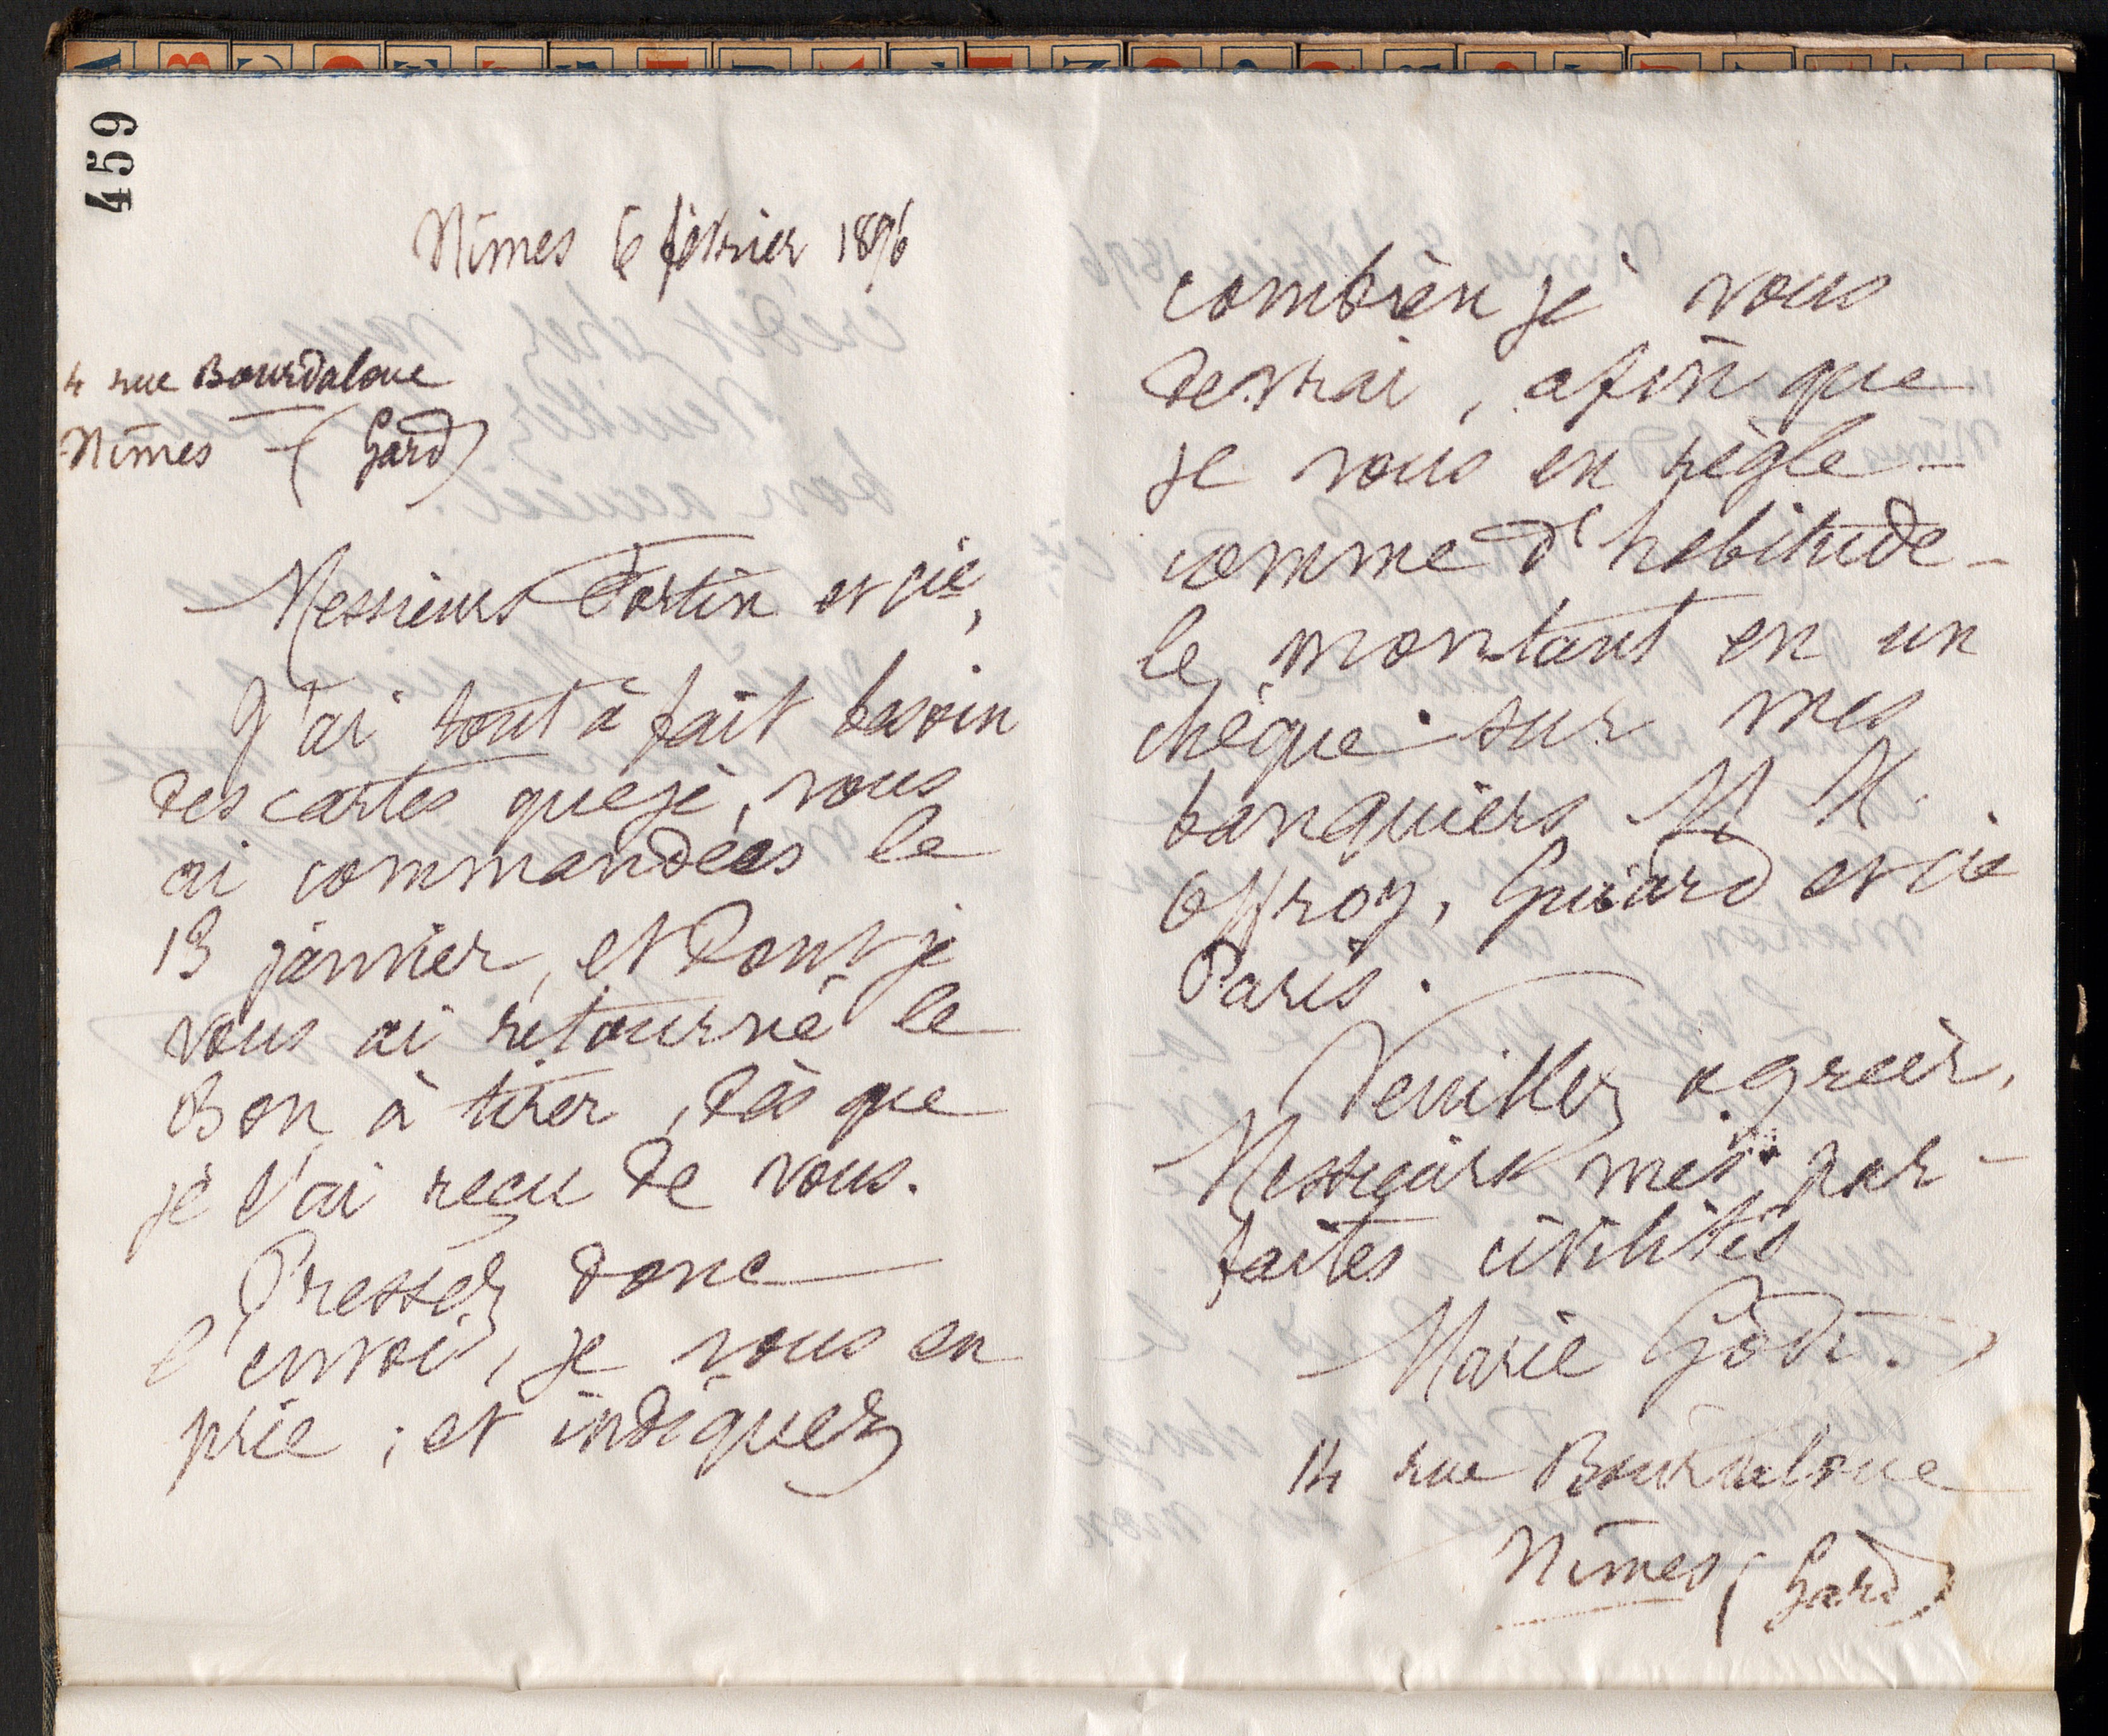 459
Nîmes 6 février 1896
4 rue Bourdaloue
Nîmes - (Gard)
Messieurs Fortin et cie,
J'ai tout à fait besoin
des cartes que je vous
ai commandées le
13 janvier, et dont je
vous ai retourné le
Bon à tirer, dès que
je l'ai reçu de vous.
Pressez donc
l'envoi, je vous en
prie ; et indiquez
combien je vous
devrai, afin que
je vous en règle -
comme d'habitude -
le montant en un
chèque sur mes
banquiers M M.
Offroy, Guiard et cie
Paris.
Veuillez agréer,
Messieurs mes par-
faites civilités
Marie Godi.
14 rue Bourdaloue
Nîmes (Gard)